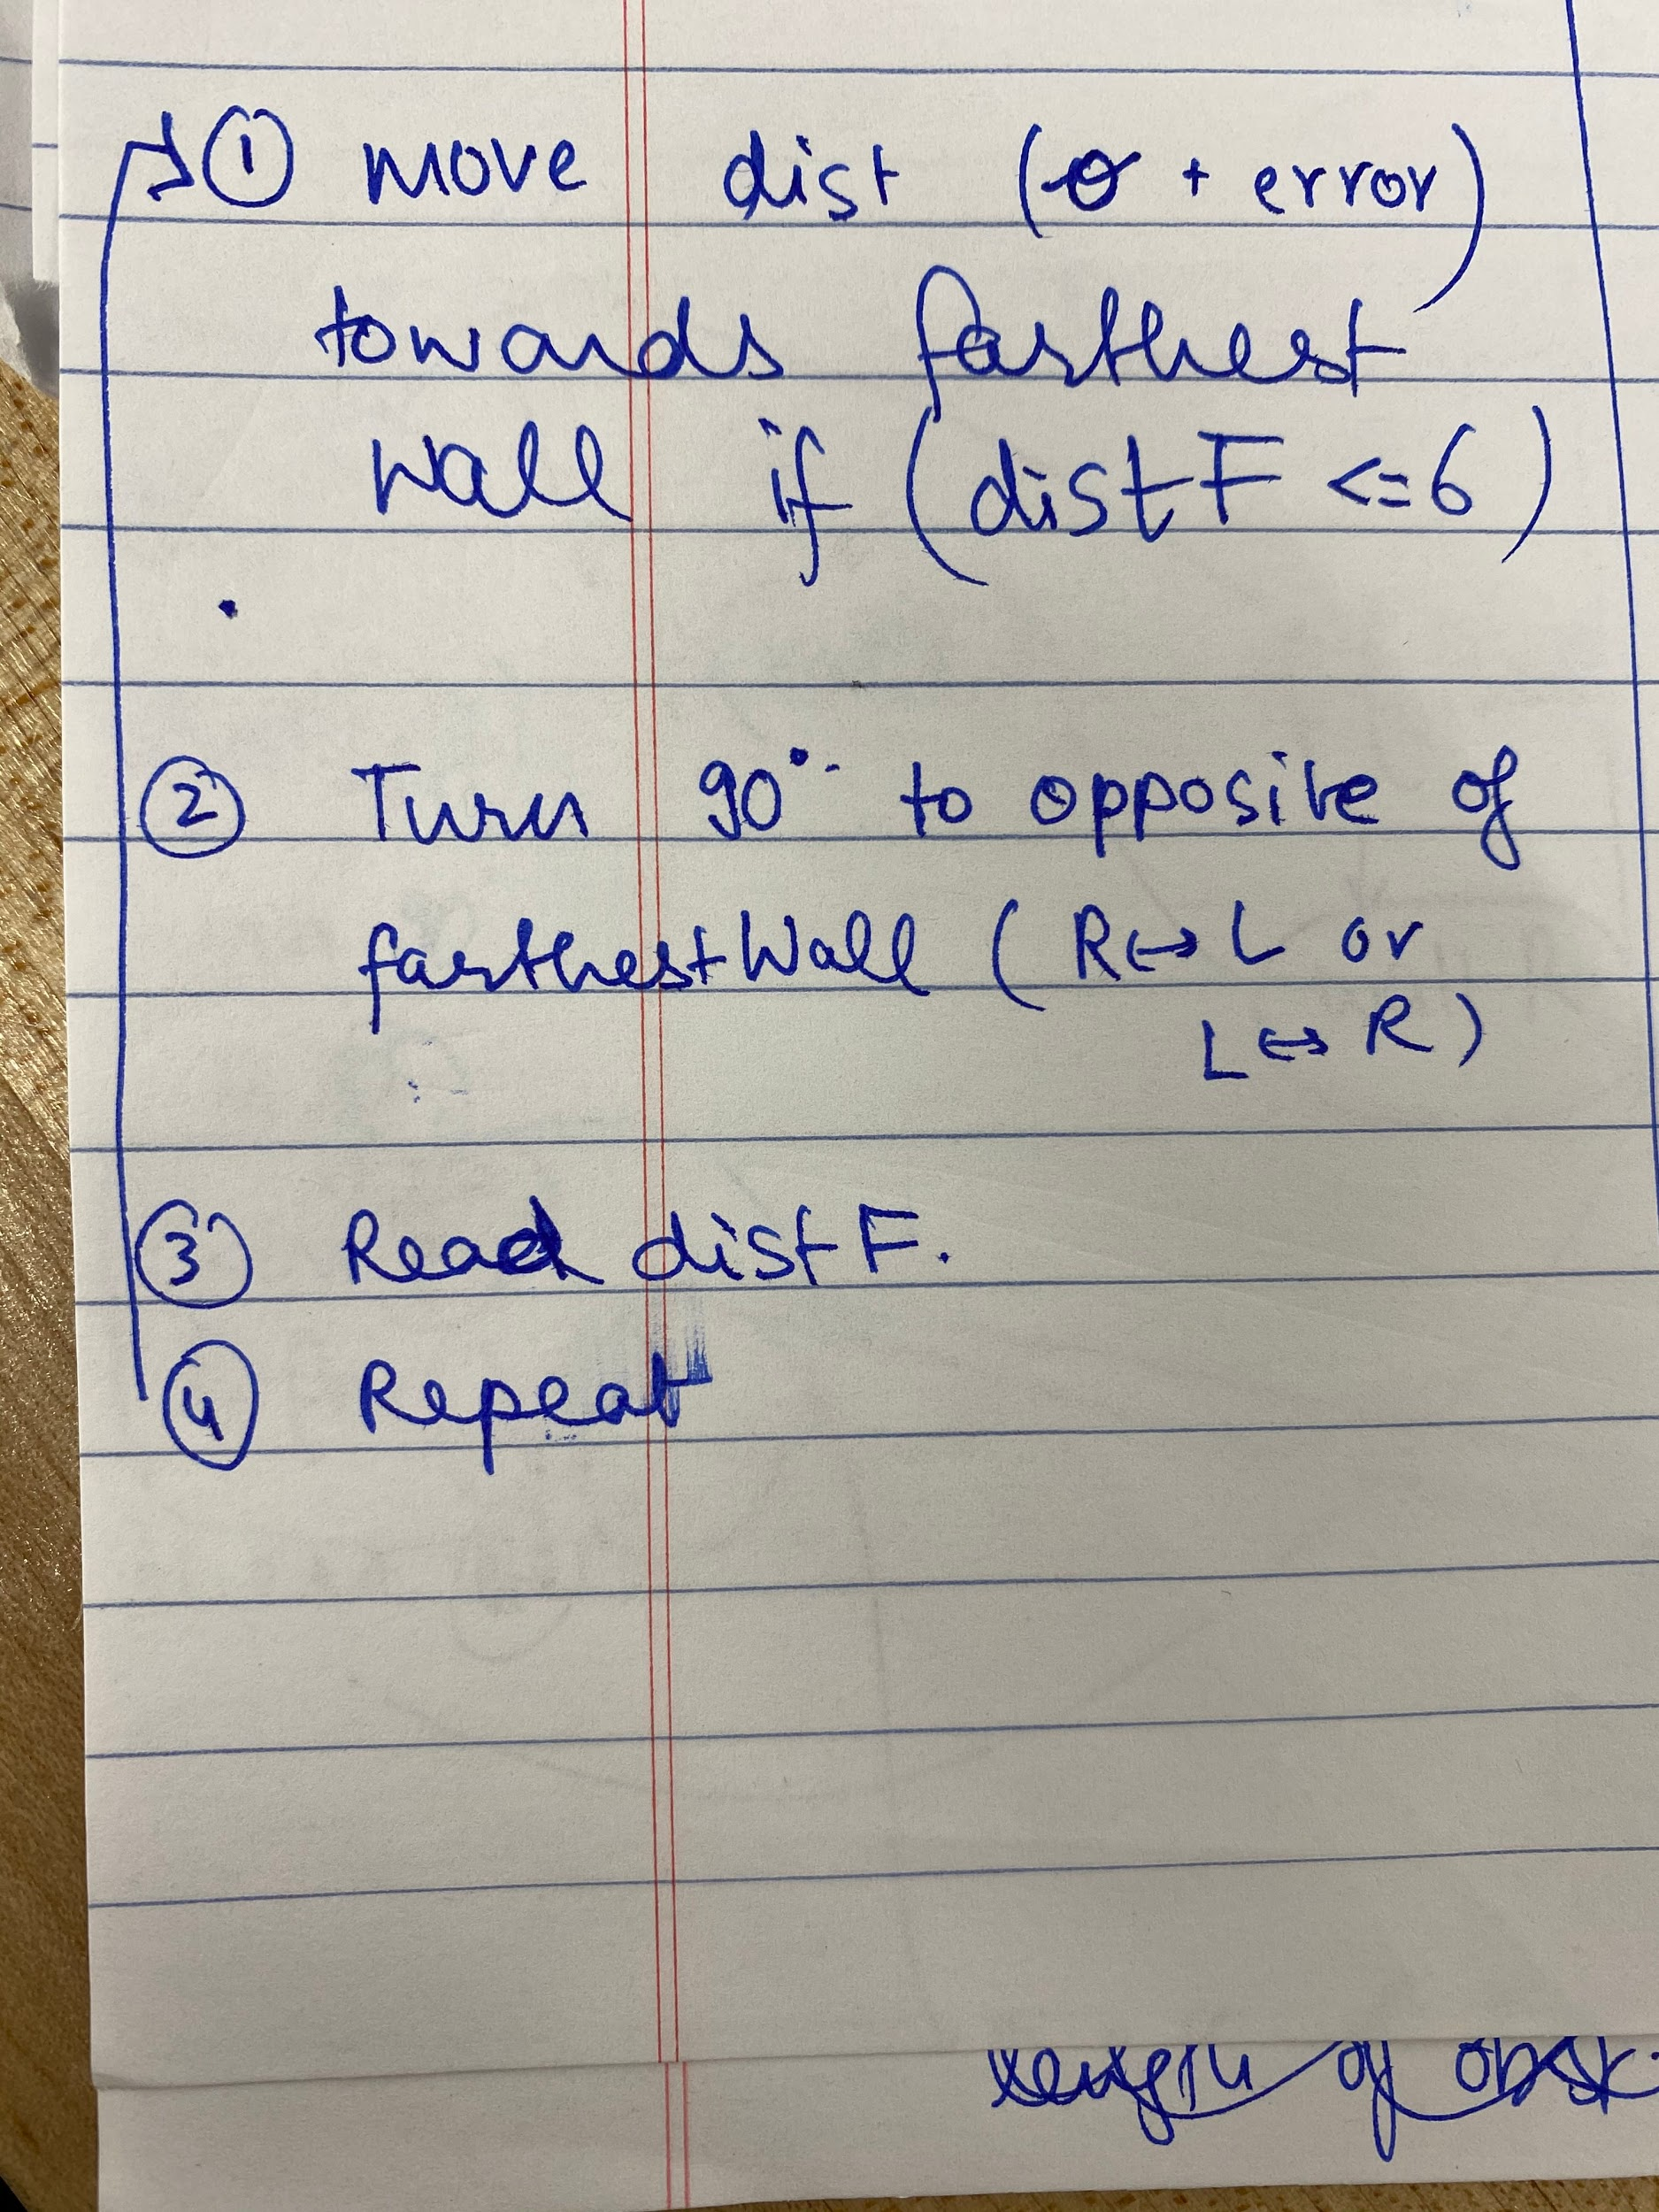 ① move dist (σ + error)
towards farthest
wall if (distF <=6)
② Turn 90° to opposite of
farthestWall (R↔L or
L↔R)
③ Read distF.
④ Repeat
length of obsk.